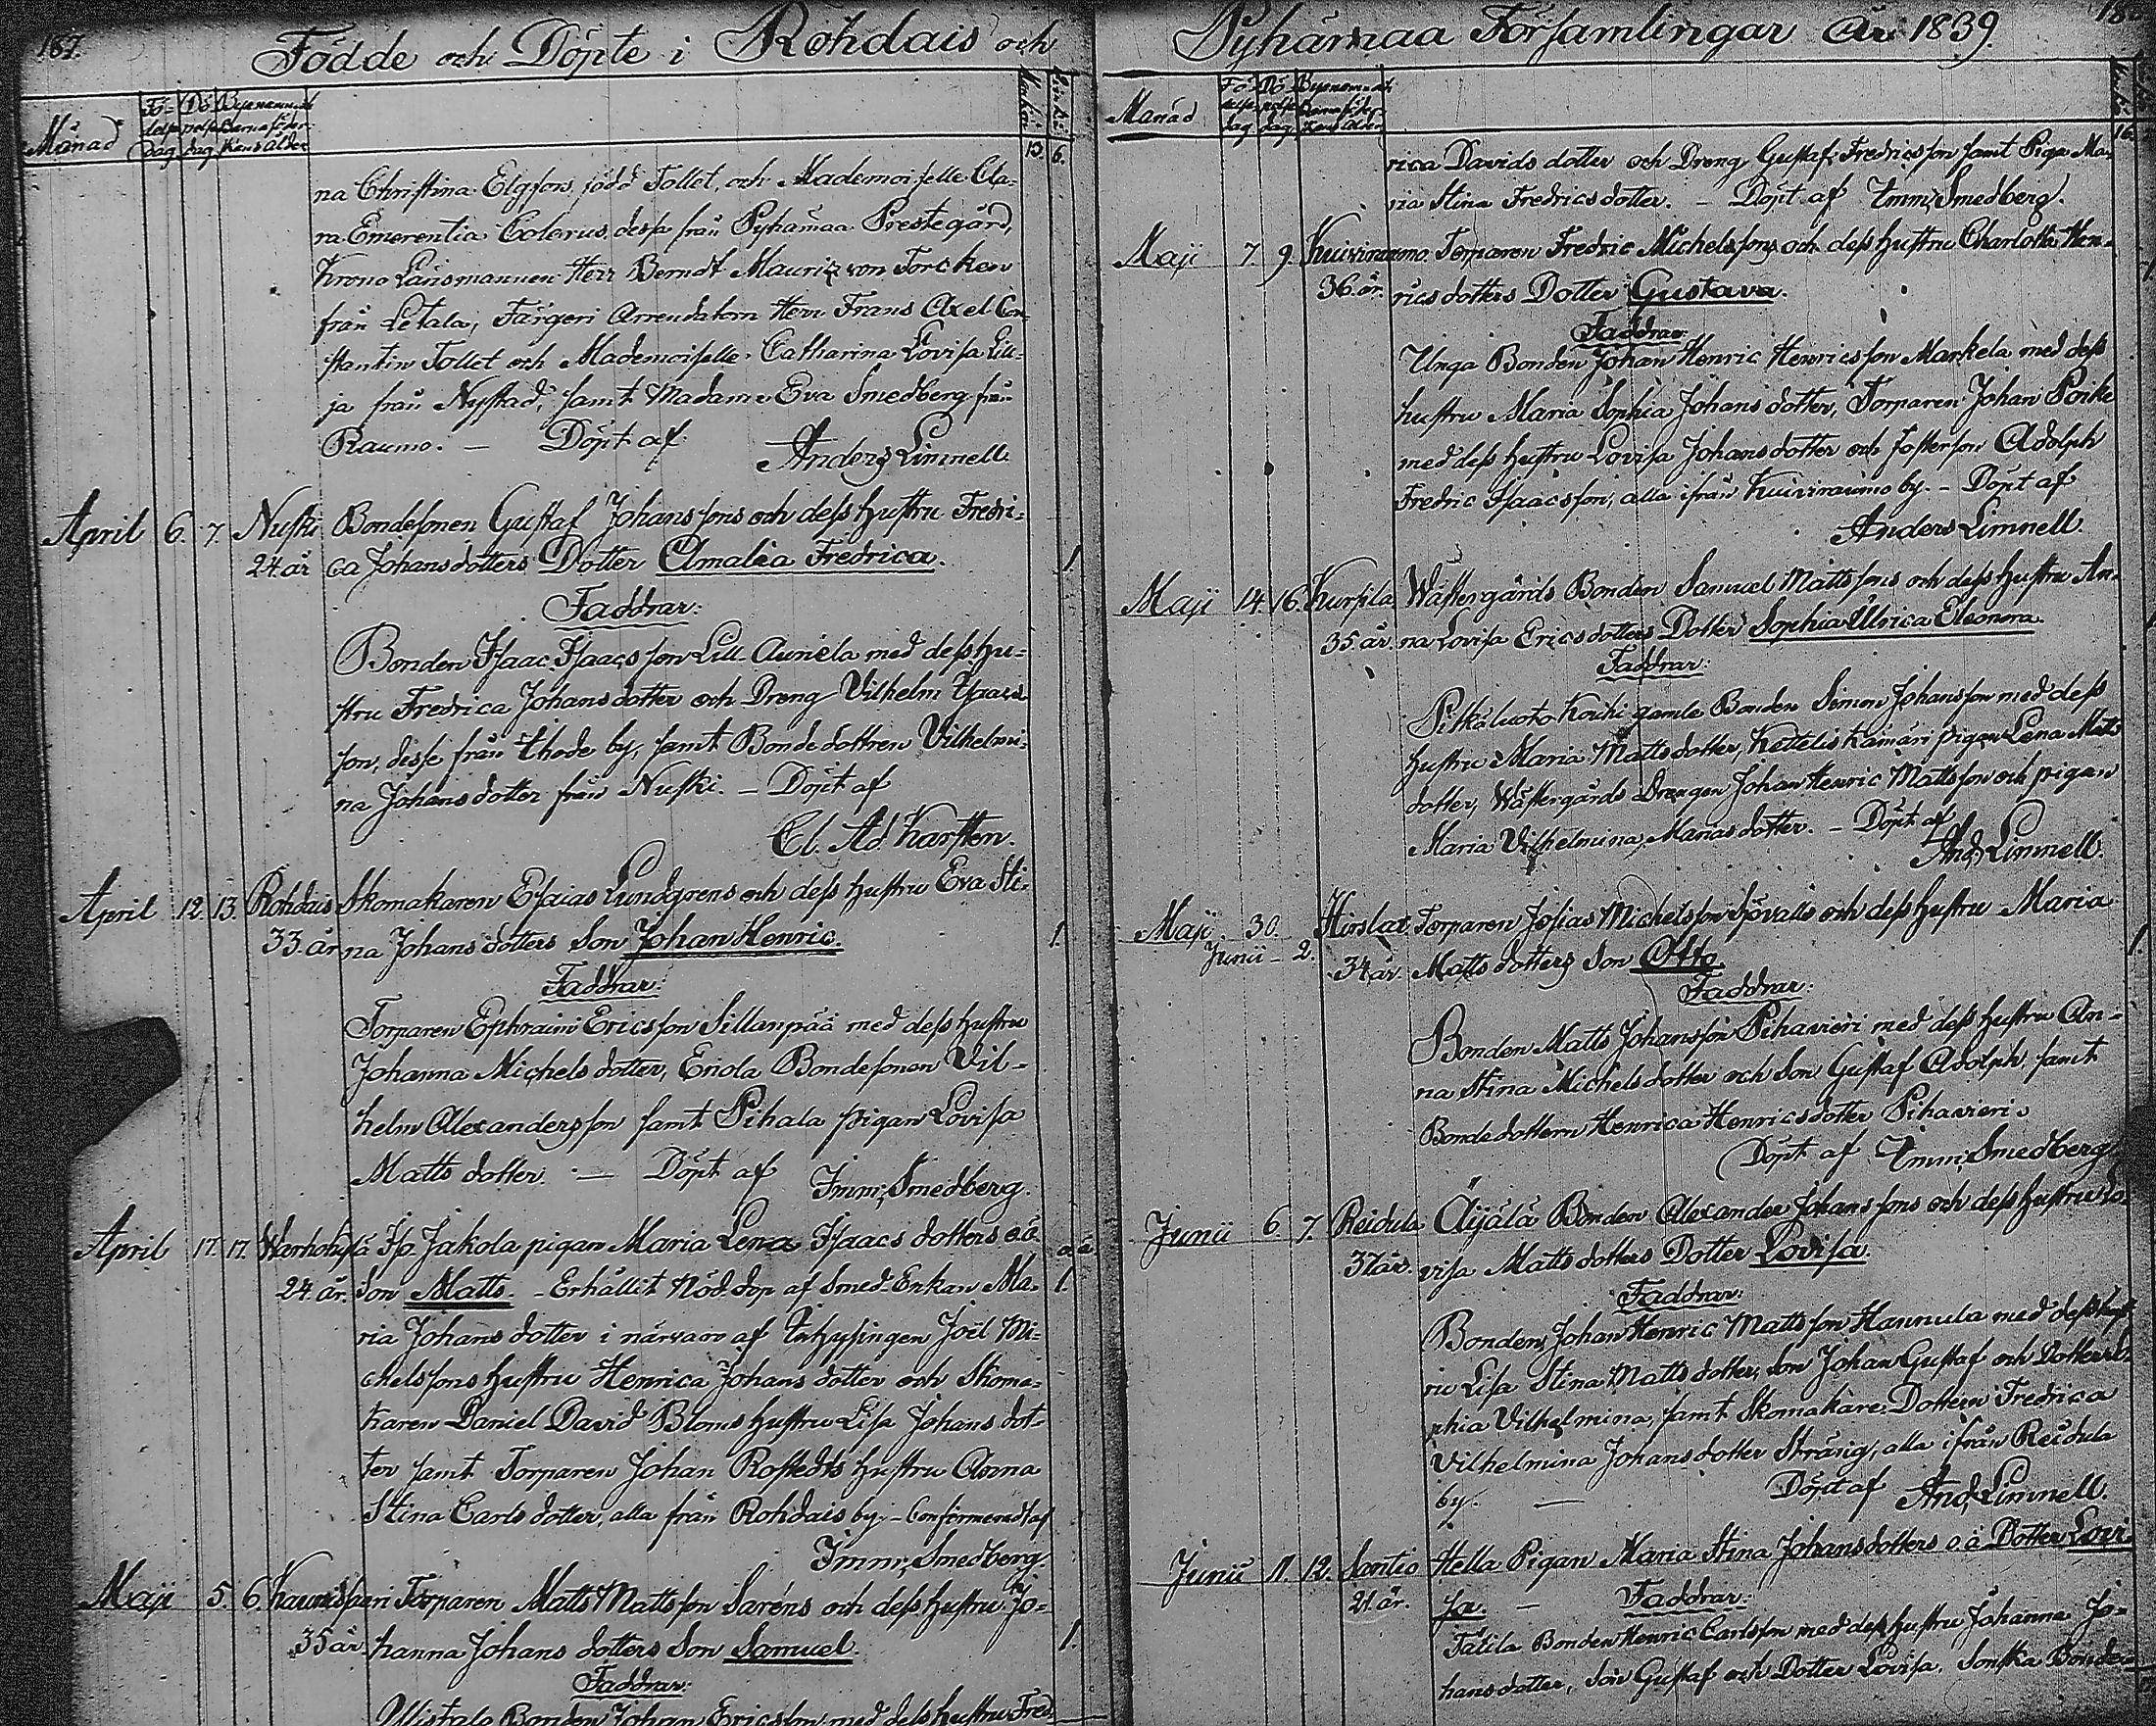 187.
Födde och Döpte i Rohdais och
Månad
Fö-
delse
dag
Dö
pelse
dag
Byanamn och
Barnaföder-
skans ålder
Mankön
Qvinkön
13. 6.
na Christina Elgfors, född Tollet, och Mademoiselle Cla-
ra Emerentia Colerus, dessa från Pyhämaa Prestegård,
Krono Länsmannen Herr Berndt Mauriz von Torcken
från Letala, Färgeri Arrendatorn Herr Frans Axel Con-
stantin Tollet och Mademoiselle Catharina Lovisa Lill-
ja från Nystad, samt Madame Eva Smedberg från
Raumo. — Döpt af
Anders Limnell.
April 6. 7. Nuski Bondesonen Gustaf Johanssons och dess hustru Fredri-
24 år ca Johansdotters Dotter Amalia Fredrica. 1
Faddrar:
Bonden Isaac Isaacsson Lill-Aunela med dess hu-
stru Fredrica Johansdotter och Dreng Vilhelm Isaacs-
son, desse från Ihode by, samt Bondedottren Vilhelmi-
na Johansdotter från Nuski. — Döpt af
Cl. Ad. Karsten.
April 12. 13. Rohdais Skomakaren Esaias Lundgrens och dess hustru Eva Sti-
33 år na Johansdotters Son Johan Henric. 1.
Faddrar:
Torparen Ephraim Ericsson Sillanpää med dess hustru
Johanna Michelsdotter, Eriola Bondesonen Vil-
helm Alexandersson samt Pihala pigan Lovisa
Mattsdotter. — Döpt af Imm; Smedberg.
April 17. 17. Warhokylä Jsp. Jakola pigan Maria Lena Isaacsdotters o.ä. o.ä.
24 år. Son Matts. — Erhållit Nöd-dop af Smed-Enkan Ma- 1.
ria Johansdotter i närvaro af Inhysingen Joël Mi-
chelssons hustru Henrica Johansdotter och Skoma-
karen Daniel David Bloms hustru Lisa Johansdot-
ter samt Torparen Johan Rostedts hustru Anna
Stina Carlsdotter, alla från Rohdais by. — Confirmerad af
Imm; Smedberg.
Maji 5. 6. Kaunisspari Torparen Matts Mattsson Saréns och dess hustru Jo-
35 år. hanna Johansdotters Son Samuel. 1.
Faddrar:
Bonden Johan Ericsson med dess hustru Fred-
Pyhämaa Församlingar År 1839.
Månad
Fö
delse
dag
Dö
pelse
dag
Byanamn och
Barnaföder-
skans ålder
16.
rica Davidsdotter och Dreng Gustaf Fredricsson samt Piga Ma-
ria Stina Fredricsdotter. — Döpt af Imm; Smedberg.
Maji 7. 9. Kuiviraumo. Torparen Fredric Michelssons och dess hustru Charlotta Hen-
36 år. ricsdotters Dotter Gustava.
Faddrar:
Unga Bonden Johan Henric Henricsson Markela med dess
hustru Maria Sophia Johansdotter, Torparen Johan Poike
med dess hustru Lovisa Johansdotter och Fosterson Adolph
Fredric Isaacsson, alla ifrån Kuiviraumo by. — Döpt af
Anders Limnell.
Maji 14. 16. Kursila Wästergårds Bonden Samuel Mattssons och dess hustru An-
35 år. na Lovisa Ericsdotters Dotter Sophia Ulrica Eleonora.
Faddrar:
Pitkäluoto Kouhi gamle Bonden Simon Johansson med dess
hustru Maria Mattsdotter, Kettelis Kamari pigan Lena Matts-
dotter, Wästergårds Drengen Johan Henric Mattsson och pigan
Maria Vilhelmina Mariasdotter. — Döpt af
And; Limnell.
Maji 30. Hirslax Torparen Josias Michelsson Sjövalls och dess hustru Maria
Junii — 2. 34 år. Mattsdotters Son Otto. 1.
Faddrar:
Bonden Matts Johansson Pihavieri med dess hustru An-
na Stina Michelsdotter och Son Gustaf Adolph, samt
Bondedottern Henrica Henricsdotter Pihavieri.
Döpt af Imm; Smedberg.
Junii 6. 7. Reidula Äijälä Bonden Alexander Johanssons och dess hustru Lo-
37 år. visa Mattsdotters Dotter Lovisa.
Faddrar:
Bonden Johan Henric Mattsson Hannula med dess hust-
ru Lisa Stina Mattsdotter, Son Johan Gustaf och Dotter So-
phia Vilhelmina, samt Skomakare-Dottern Fredrica
Vilhelmina Johansdotter Stränig, alla ifrån Reidula
by. — Döpt af And; Limnell.
Junii 11. 12. Santio Hella Pigan Maria Stina Johansdotters o.ä. Dotter Lovi-
21 år. sa. — Faddrar:
Tätilä Bonden Henric Carlsson med dess hustru Johanna Jo-
hansdotter, Son Gustaf och Dotter Lovisa, Bonde-